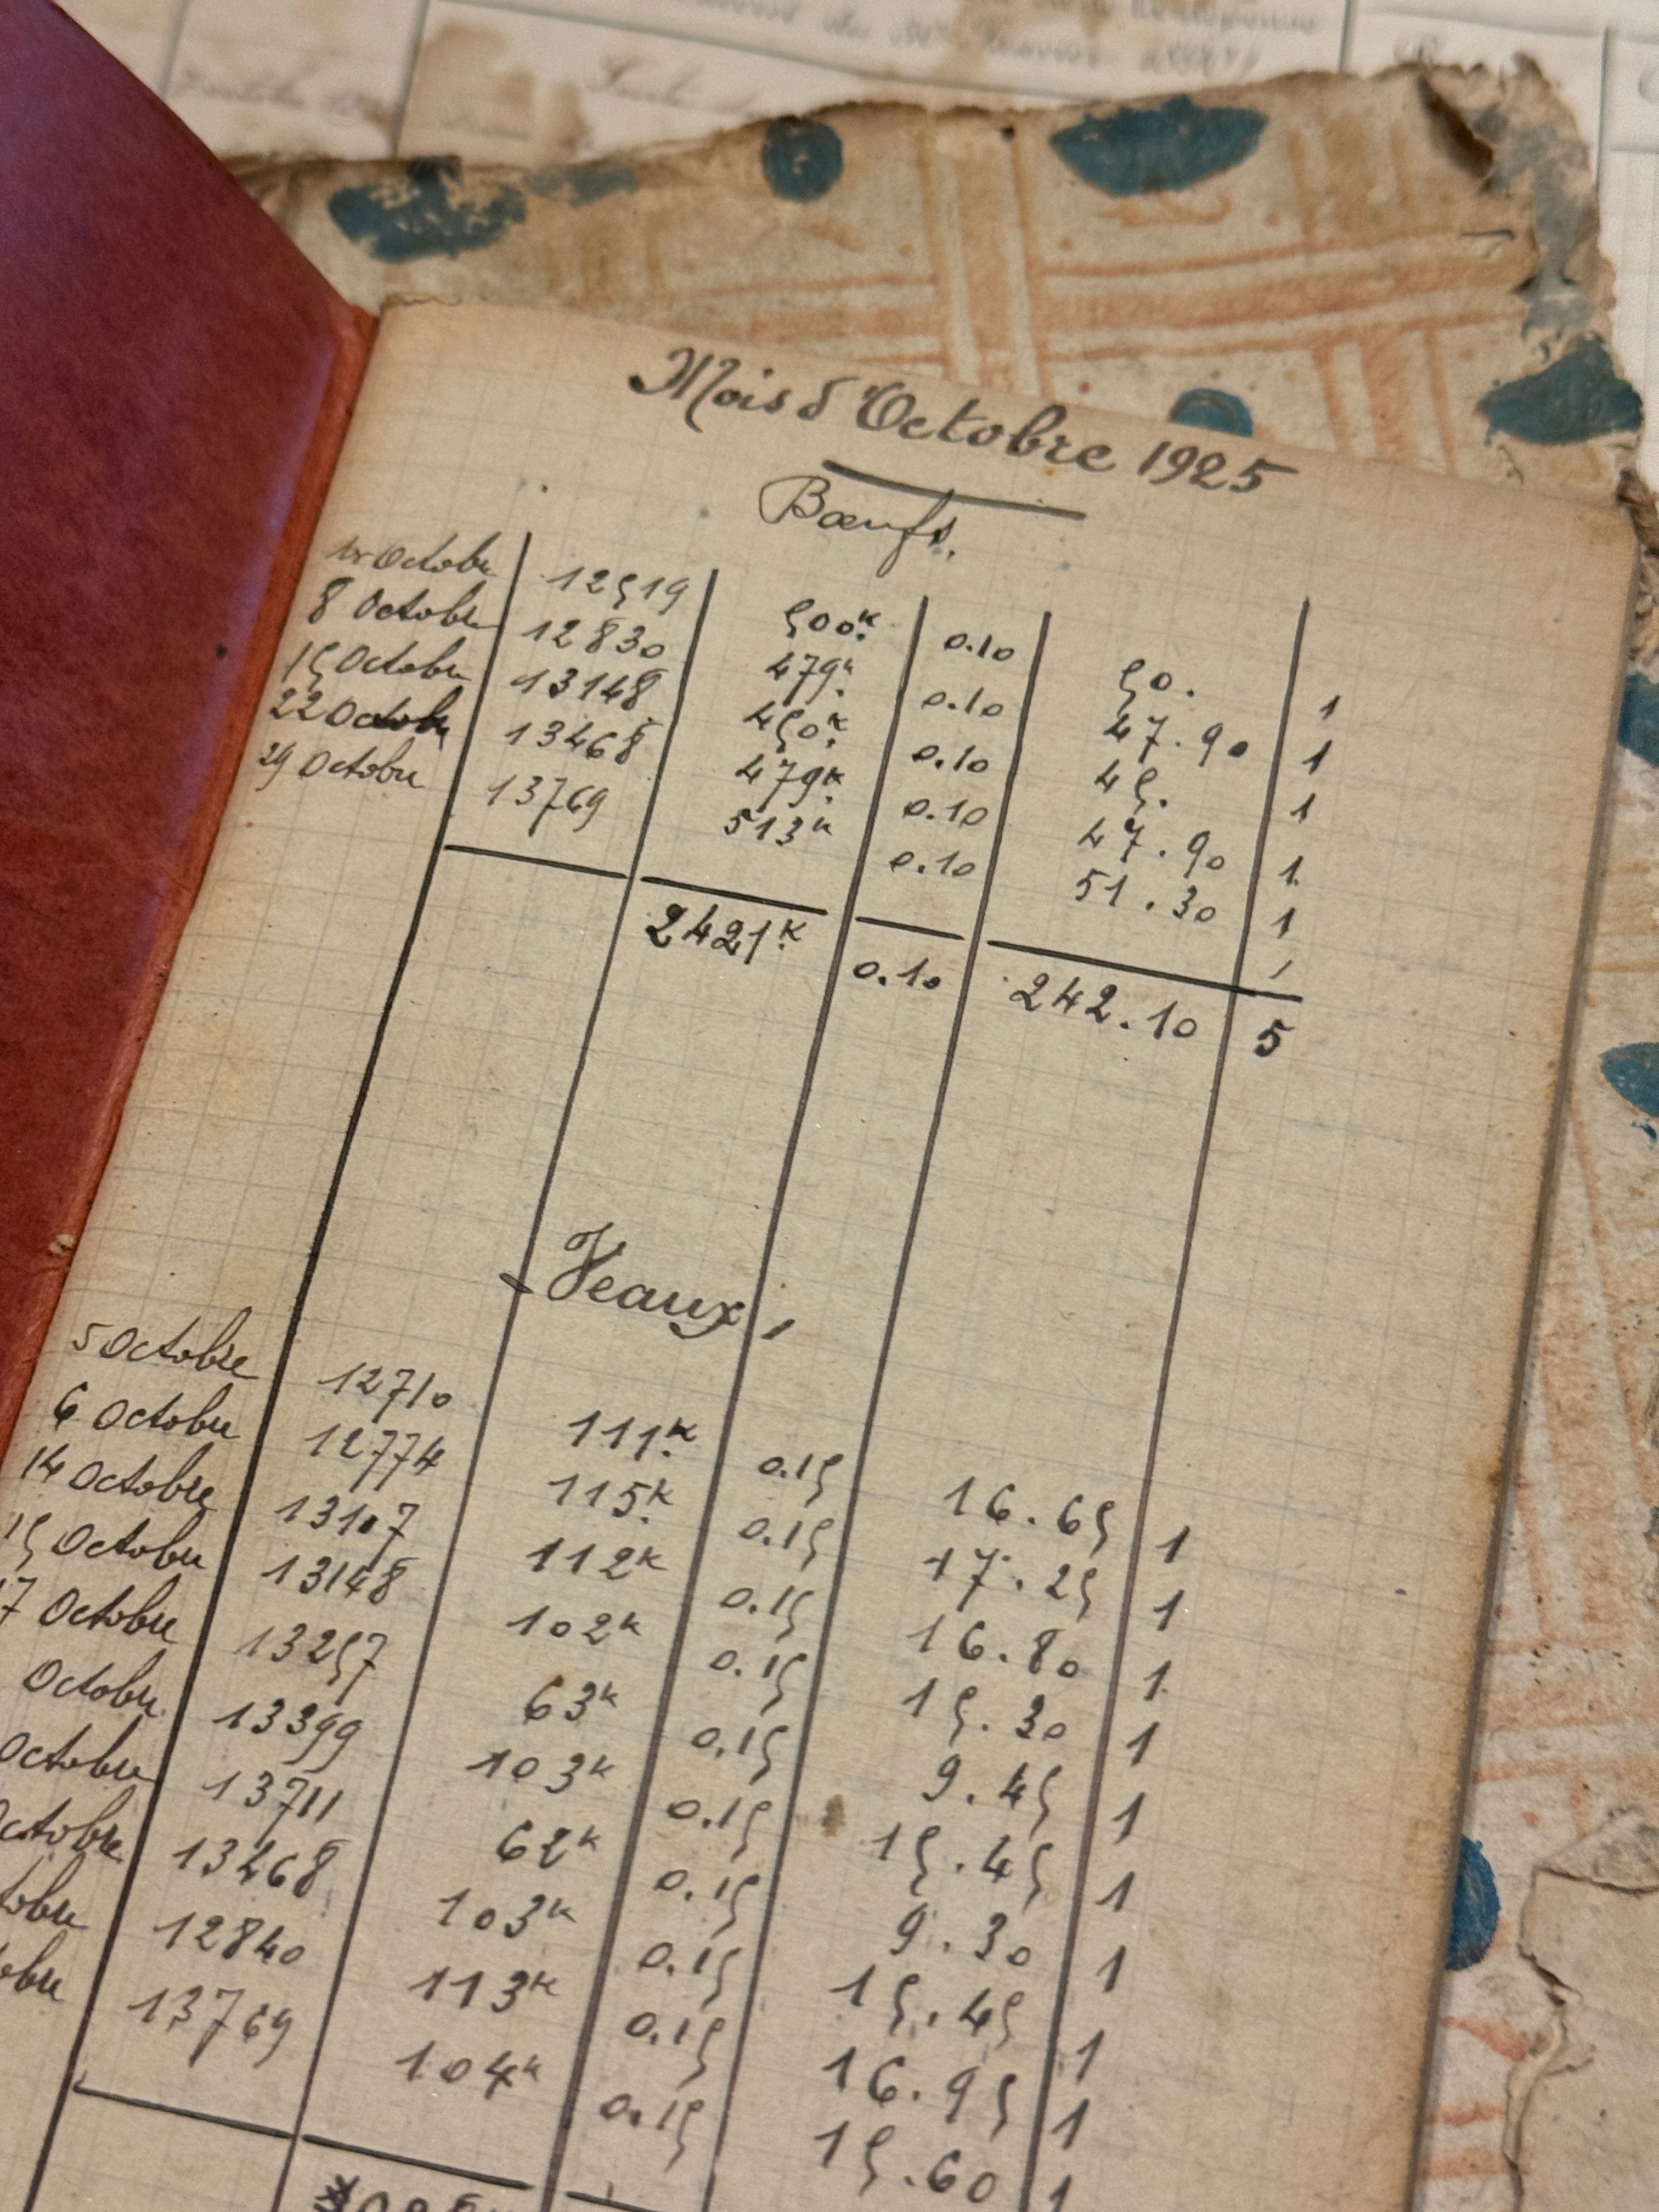 Mois d'Octobre 1925
Bœufs.
1er Octobre 12519 500k. 0.10 50. 1
8 Octobre 12830 479k. 0.10 47.90 1
15 Octobre 13148 450k. 0.10 45. 1
22 Octobre 13468 479k. 0.10 47.90 1
29 Octobre 13769 513k 0.10 51.30 1
2421k. 0.10 242.10 5
Veaux
5 Octobre 12710 111k. 0.15 16.65 1
6 Octobre 12774 115k. 0.15 17.25 1
14 Octobre 13107 112k 0.15 16.80 1
15 Octobre 13148 102k 0.15 15.30 1
17 Octobre 13257 63k 0.15 9.45 1
Octobre 13399 103k 0.15 15.45 1
Octobre 13711 62k 0.15 9.30 1
Octobre 13468 103k 0.15 15.45 1
tobre 12840 113k 0.15 16.95 1
obre 13769 104k 0.15 15.60 1